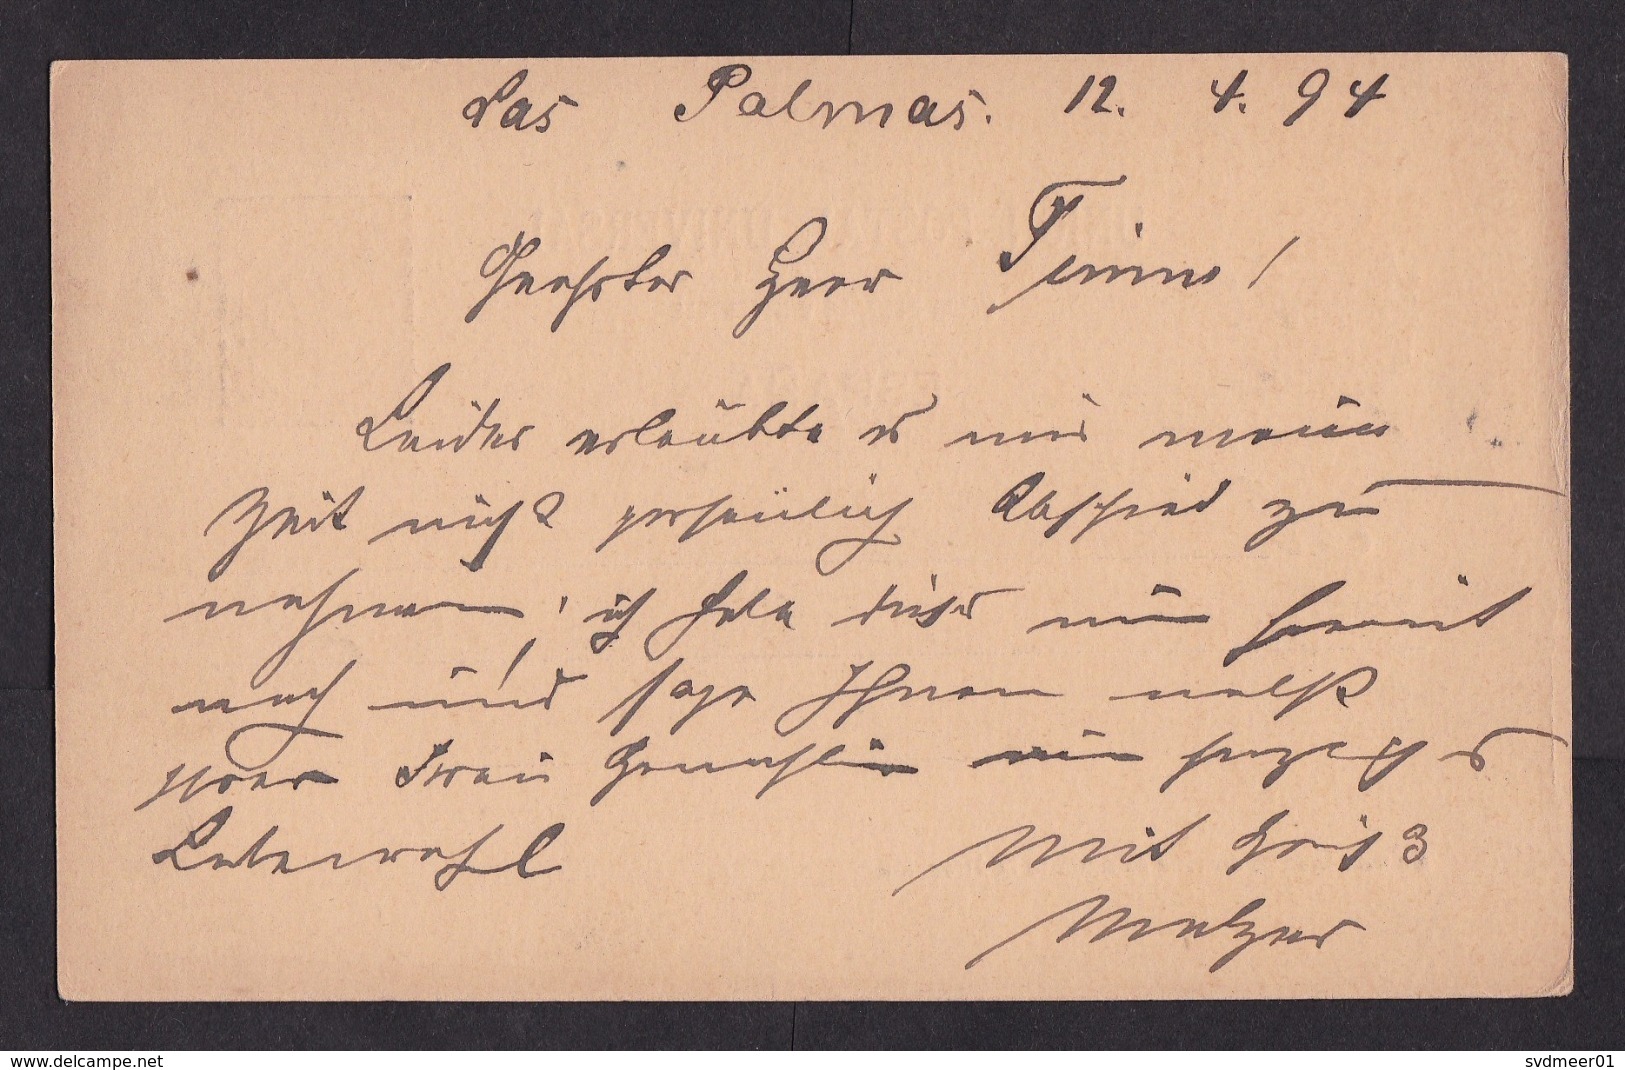 Las Palmas. 12. 4. 94
Geehrter Herr Timm!
Leider erlaubte es mir meine
Zeit nicht persönlich Abschied zu
nehmen, ich hole dieses nun hiermit
nach und sage Ihnen nebst
Ihrer Frau Gemahlin ein herzliches
Lebewohl
Mit Gruß
Metzner
www.delcampe.net
svdmeer01